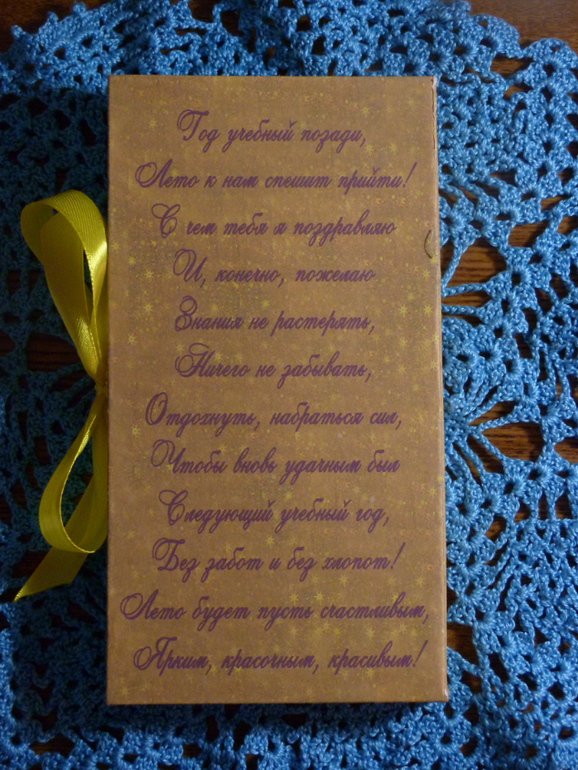 Год учебный позади,
Лето к нам спешит прийти!
С чем тебя я поздравляю
И, конечно, пожелаю
Знания не растерять,
Ничего не забывать,
Отдохнуть, набраться сил,
Чтобы вновь удачным был
Следующий учебный год,
Без забот и без хлопот!
Лето будет пусть счастливым,
Ярким, красочным, красивым!